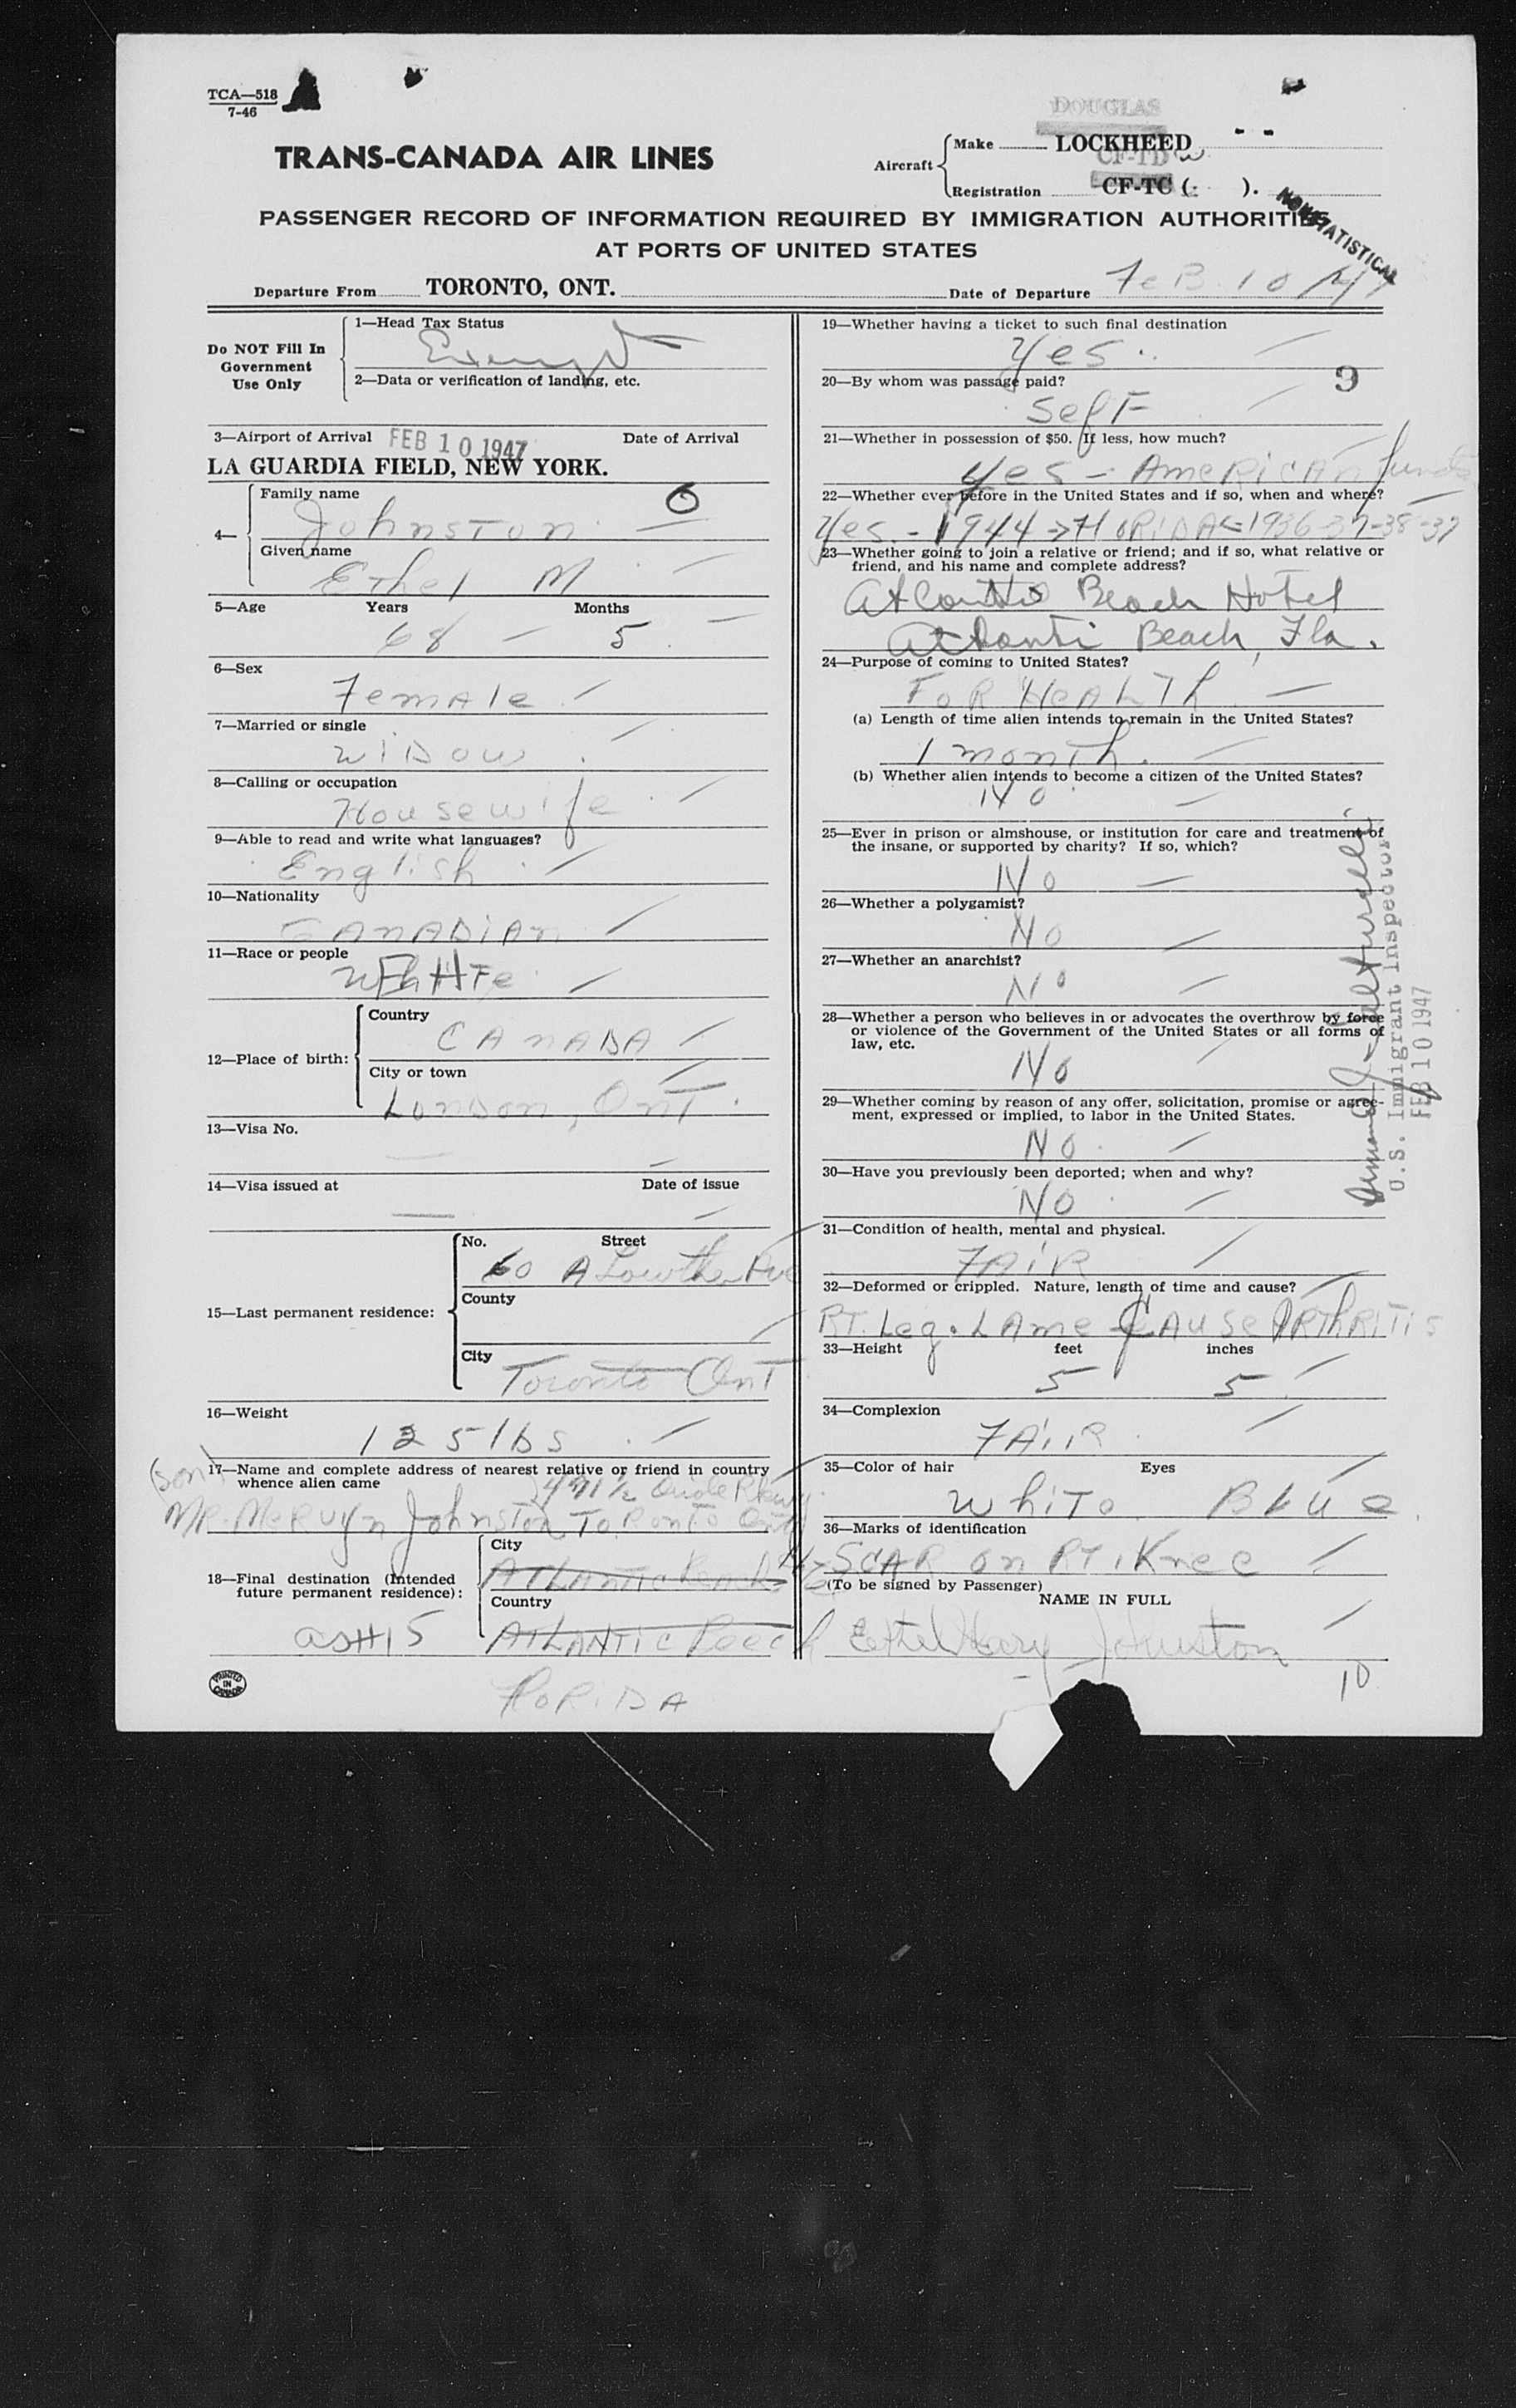 TCA—518
7-46
DOUGLAS
TRANS-CANADA AIR LINES
Aircraft
Make LOCKHEED
CF-TD W
Registration CF-TC ( ).
NON STATISTICAL
PASSENGER RECORD OF INFORMATION REQUIRED BY IMMIGRATION AUTHORITIES
AT PORTS OF UNITED STATES
Departure From TORONTO, ONT. Date of Departure FeB. 10/47
Do NOT Fill In
Government
Use Only
1—Head Tax Status
Exempt
2—Data or verification of landing, etc.
3—Airport of Arrival FEB 10 1947 Date of Arrival
LA GUARDIA FIELD, NEW YORK.
4—
Family name
Johnston
6
Given name
Ethel M
5—Age Years Months
68 — 5
6—Sex
Female
7—Married or single
WIDOW
8—Calling or occupation
Housewife
9—Able to read and write what languages?
English
10—Nationality
CANADIAN
11—Race or people
White
12—Place of birth:
Country
CANADA
City or town
London, Ont.
13—Visa No.
—
14—Visa issued at Date of issue
—
15—Last permanent residence:
No. Street
60 A Lowther Ave
County
City
Toronto Ont
16—Weight
125 lbs
(son)
17—Name and complete address of nearest relative or friend in country
whence alien came
Mr. Mervyn Johnston Toronto Ont
18—Final destination (Intended
future permanent residence):
City
Atlantic Beach
Country
Atlantic Beach
FLORIDA
PRINTED
IN
CANADA
19—Whether having a ticket to such final destination
Yes.
20—By whom was passage paid?
9
Self
21—Whether in possession of $50. If less, how much?
Yes — American funds
22—Whether ever before in the United States and if so, when and where?
Yes. - 1944 FLORIDA 1936-37-38-39
23—Whether going to join a relative or friend; and if so, what relative or
friend, and his name and complete address?
Atlantic Beach Hotel
Atlantic Beach, Fla.
24—Purpose of coming to United States?
FOR HEALTH
(a) Length of time alien intends to remain in the United States?
1 month.
(b) Whether alien intends to become a citizen of the United States?
No
25—Ever in prison or almshouse, or institution for care and treatment of
the insane, or supported by charity? If so, which?
No
26—Whether a polygamist?
No
27—Whether an anarchist?
No
28—Whether a person who believes in or advocates the overthrow by force
or violence of the Government of the United States or all forms of
law, etc.
No
29—Whether coming by reason of any offer, solicitation, promise or agree-
ment, expressed or implied, to labor in the United States.
No
30—Have you previously been deported; when and why?
No
31—Condition of health, mental and physical.
FAIR
32—Deformed or crippled. Nature, length of time and cause?
RT. Leg. LAME CAUSE ARTHRITIS
33—Height feet inches
5 5
34—Complexion
FAIR
35—Color of hair Eyes
White Blue
36—Marks of identification
SCAR on RT. Knee
(To be signed by Passenger)
NAME IN FULL
Ethel Mary Johnston
10
U.S. Immigrant Inspector
FEB 10 1947